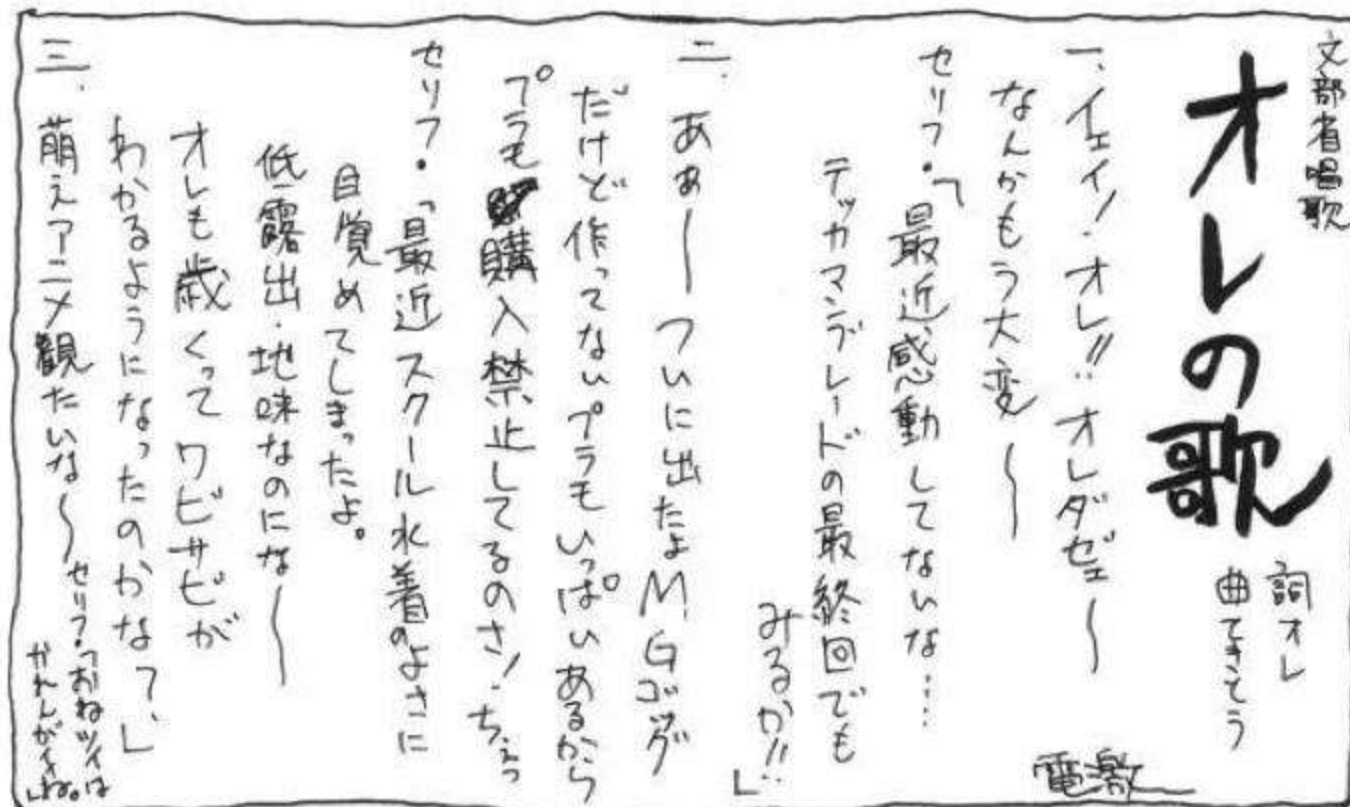 文部省唱歌
オレの歌
詞オレ
曲てきとう
一、イェイ!オレ!!オレダゼェ〜
なんかもう大変〜
セリフ・「最近感動してないな……
テッカマンブレードの最終回でも
みるか!!」
二、あぁーついに出たよM.Gゴッグ
だけど作ってないプラモいっぱいあるから
プラモ購入禁止してるのさ!ちぇっ
セリフ・「最近スクール水着のよさに
目覚めてしまったよ。
低露出・地味なのにな〜
オレも歳くってワビサビが
わかるようになったのかな?」
三、萌えアニメ観たいな〜
セリフ・「おねツイは
かれんがイイね。」
電激